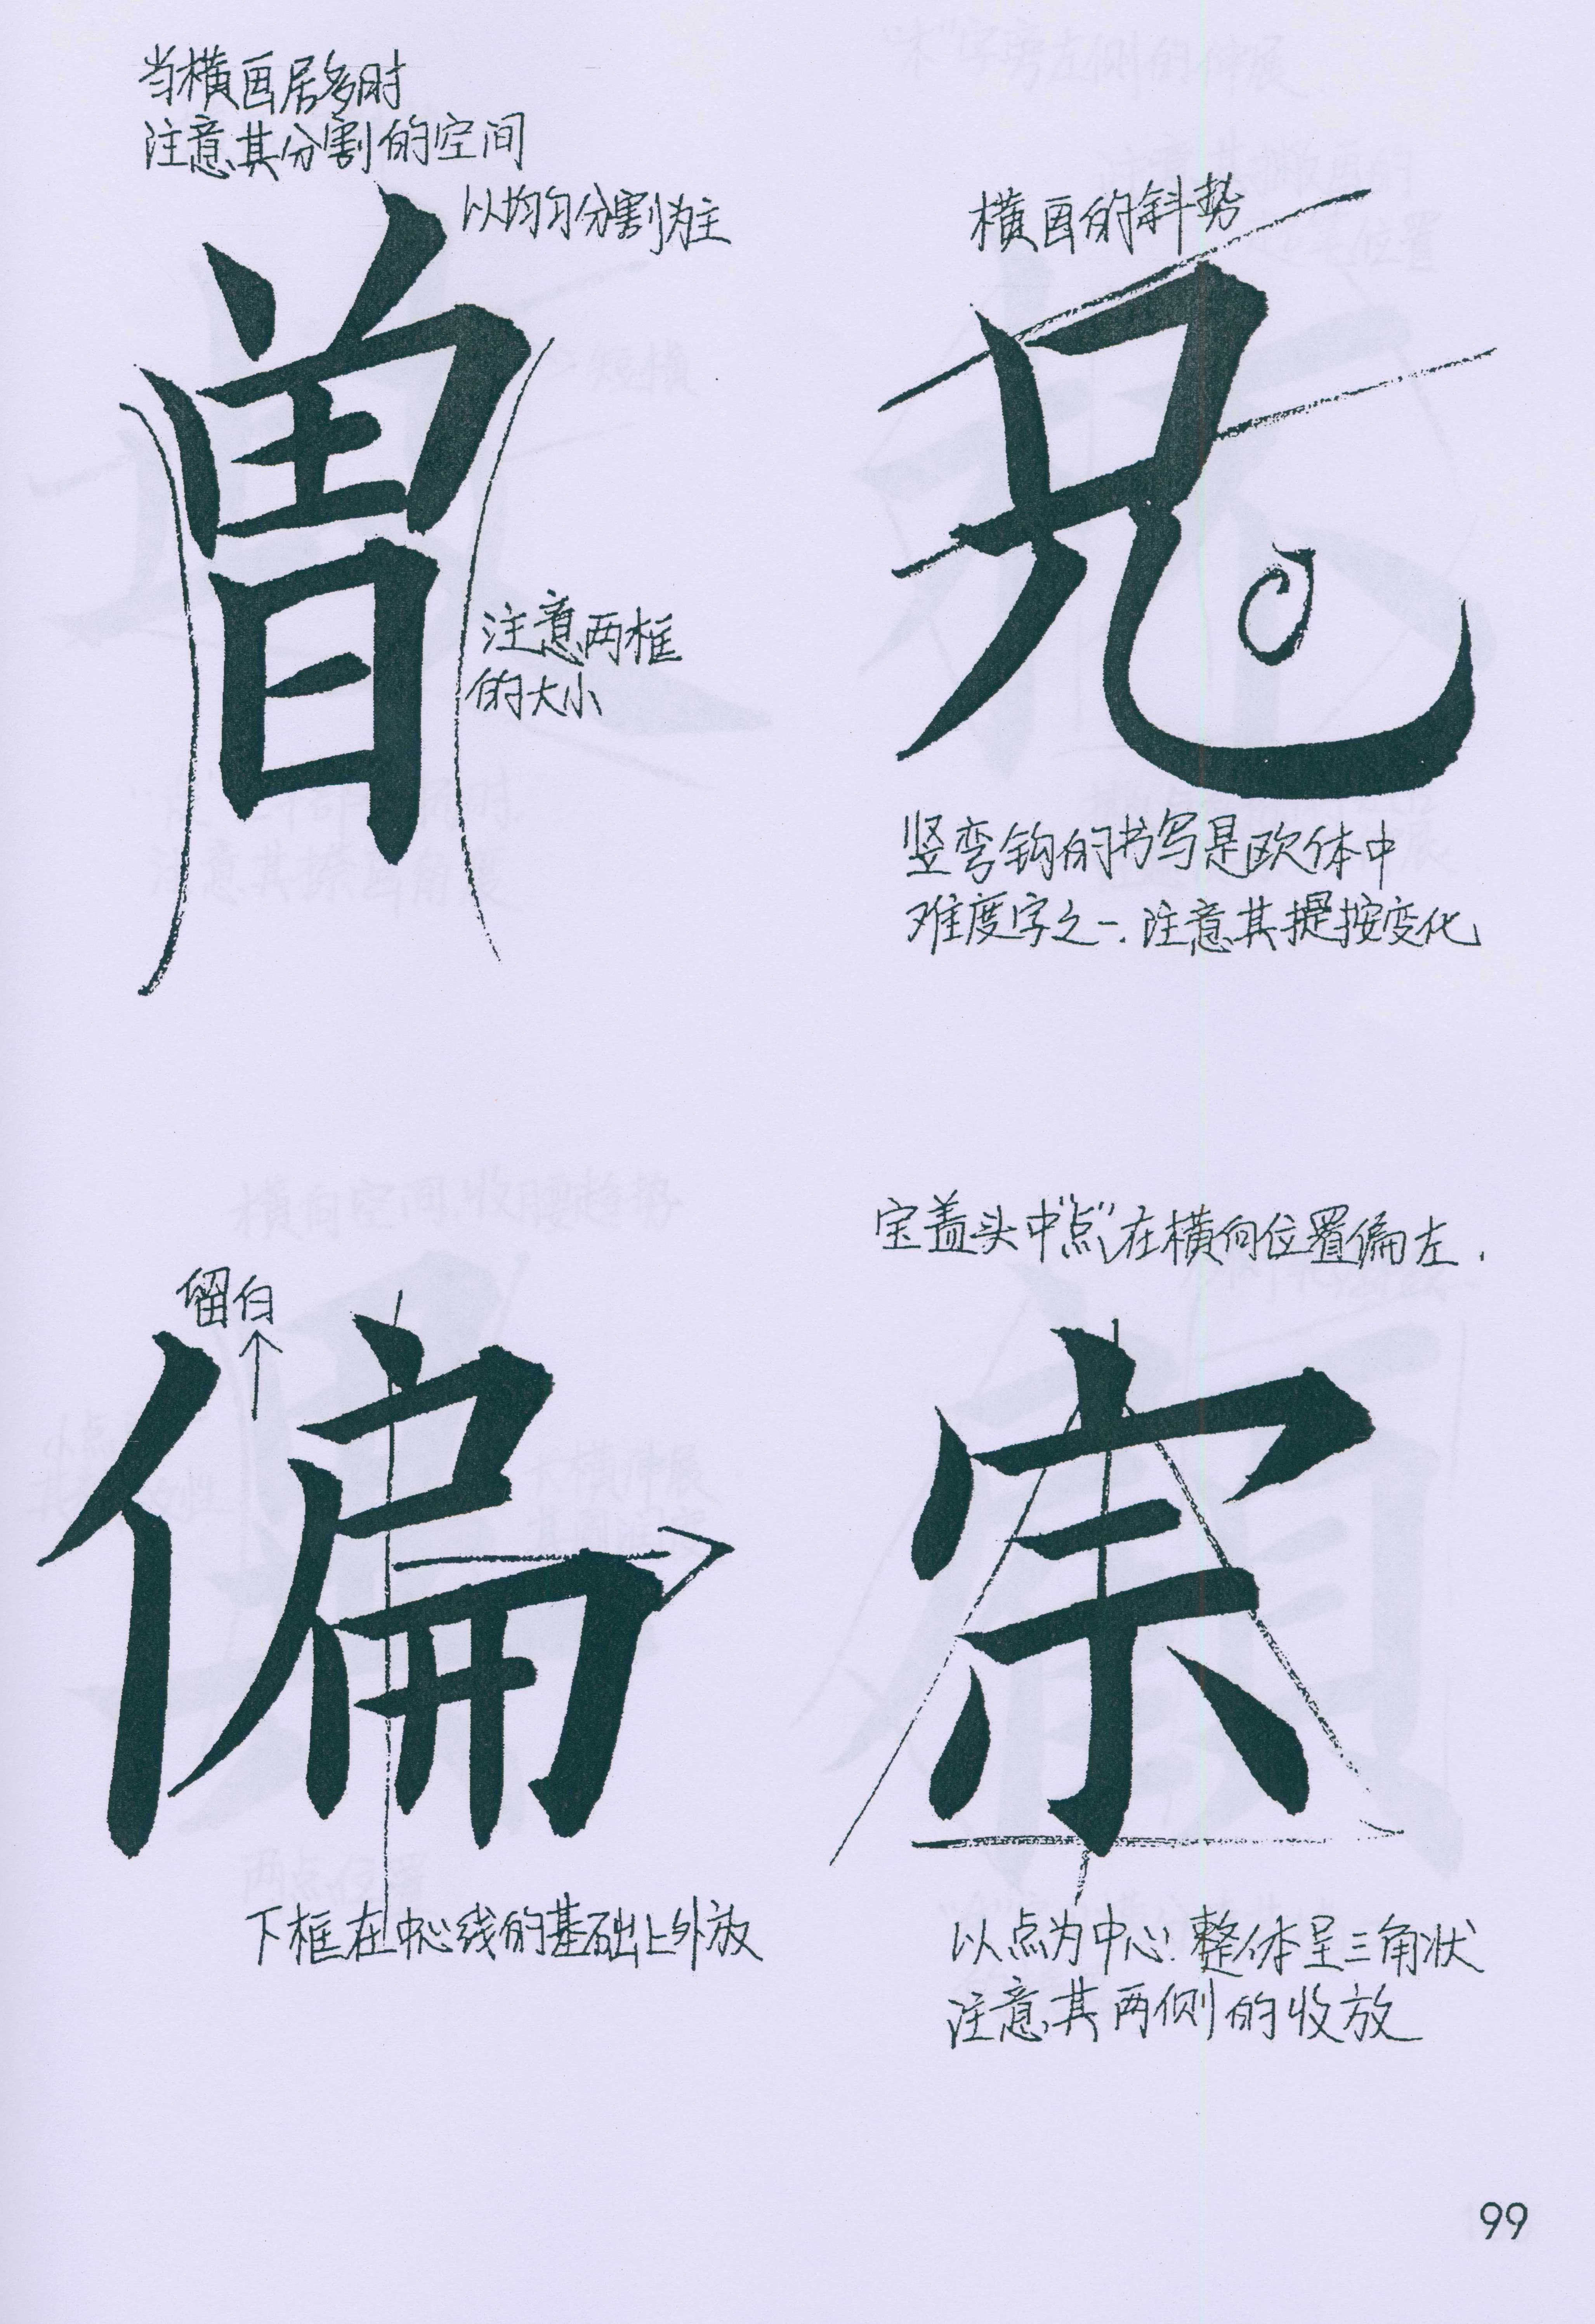 当横画居多时
注意其分割的空间
以均匀分割为主
曽
注意两框
的大小
横画的斜势
兄
竖弯钩的书写是欧体中
难度字之一.注意其提按变化
留白
偏
下框在中心线的基础上外放
宝盖头中“点”在横向位置偏左.
宗
以点为中心.整体呈三角状
注意其两侧的收放
99